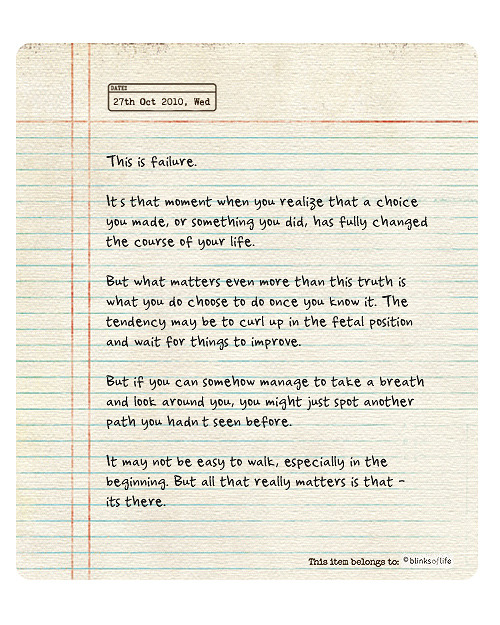 DATE:
27th Oct 2010, Wed
This is failure.
Its that moment when you realize that a choice
you made, or something you did, has fully changed
the course of your life.
But what matters even more than this truth is
what you do choose to do once you know it. The
tendency may be to curl up in the fetal position
and wait for things to improve.
But if you can somehow manage to take a breath
and look around you, you might just spot another
path you hadn t seen before.
It may not be easy to walk, especially in the
beginning. But all that really matters is that -
its there.
This item belongs to: ©blinksoflife